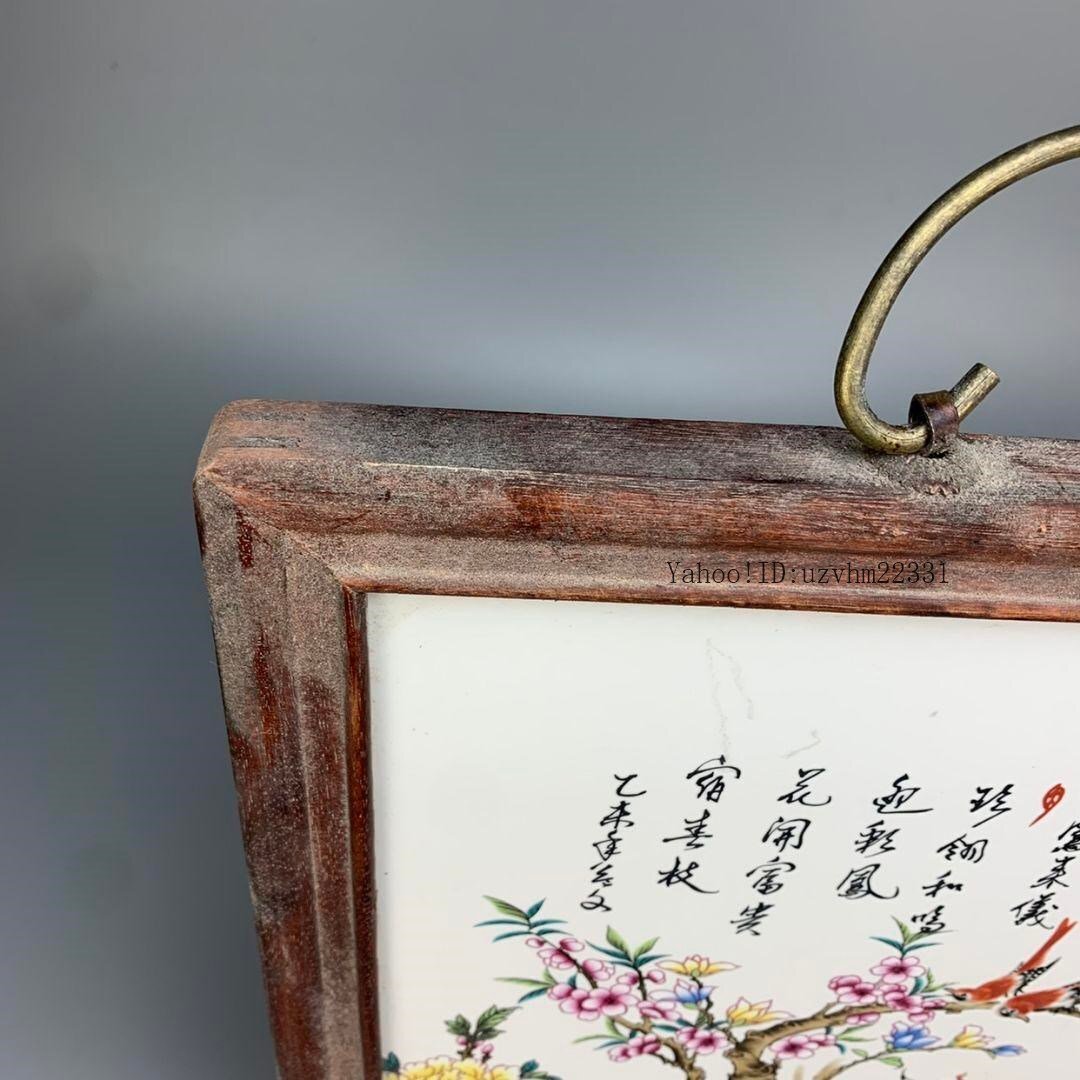 Yahoo!ID:uzvhm22331
來儀
珍翎和鳴
迎彩鳳
花開富贵
宿春枝
乙未年